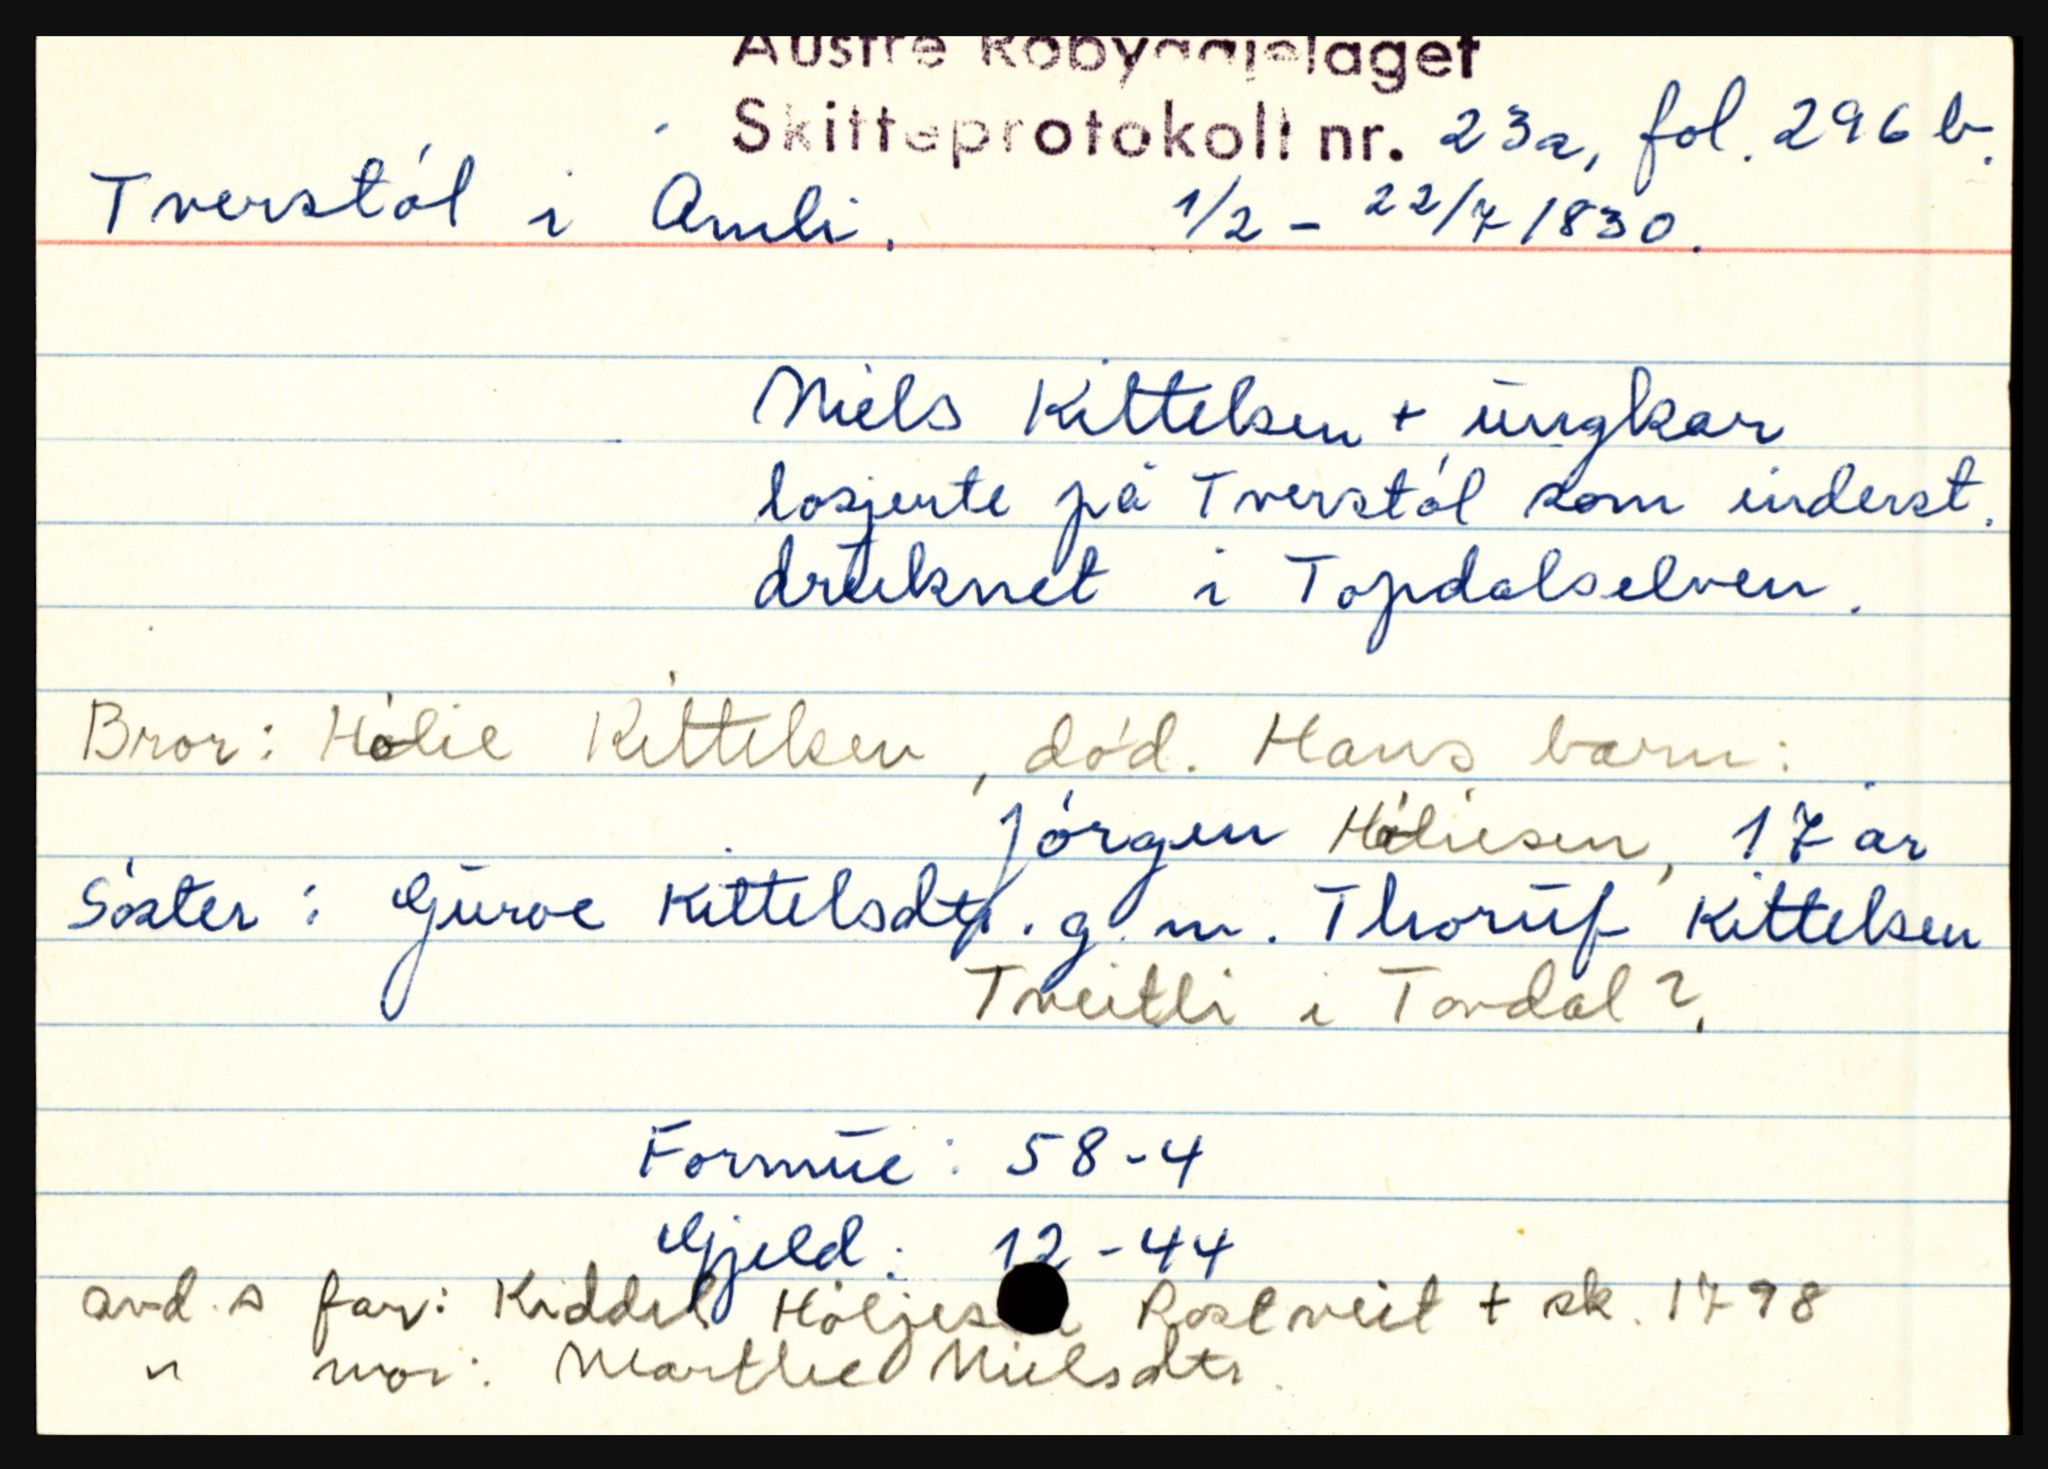 Austre Robyggjelaget
Skifteprotokoll nr. 23a, fol. 296 b.
Tverstøl i Åmli. 1/2 - 22/7 1830.
Niels Kittelsen + ungkar
losjerte på Tverstøl som inderst.
druknet i Topdalselven.
Bror: Hølie Kittelsen, død. Hans barn:
Jørgen Høliesen, 17 år
Søster: Gurve Kittelsdtr. g. m. Thoruf Kittelsen
Tveitli i Tovdal?.
Formue: 58-4
Gjeld: 12-44
avd. s far: Kiddel Høljes Rostveit + sk. 1798
" mor: Marthe Nielsdtr.